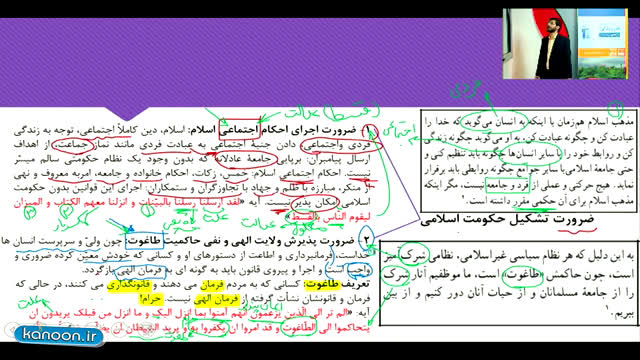 قسط) عدالت
۱- ضرورت اجرای احکام اجتماعی اسلام: اسلام، دین کاملاً اجتماعی، توجه به زندگی
فردی واجتماعی دادن جنبهٔ اجتماعی به عبادت فردی مانند نماز جماعت، از اهداف
ارسال پیامبران: برپایی جامعهٔ عادلانه که بدون وجود یک نظام حکومتی سالم میسّر
نیست. احکام اجتماعی اسلام: خمس، زکات، احکام خانواده و جامعه، امربه معروف و نهی
از منکر، مبارزه با ظلم و جهاد با تجاوزگران و ستمکاران. اجرای این قوانین بدون حکومت
اسلامی امکان پذیر نیست. آیه «لقد أرسلنا رسلنا بالبیّنات و انزلنا معهم الکتاب و المیزان
لیقوم الناس بالقسط»
عدالت
۲- ضرورت پذیرش ولایت الهی و نفی حاکمیت طاغوت: چون ولیّ و سرپرست انسان ها
خداست، فرمانبرداری و اطاعت از دستورهای او و کسانی که خودش معین کرده ضروری و
واجب است و اجرا و پیروی قانون باید به گونه ای به فرمان الهی بازگردد.
تعریف طاغوت: کسانی که به مردم فرمان می دهند و قانونگذاری می کنند، در حالی که
فرمان و قانونشان نشأت گرفته از فرمان الهی نیست. حرام!
آیه: «الم تر الی الّذین یزعمون انهم آمنوا بما انزل الیک و ما انزل من قبلک یریدون ان
یتحاکموا الی الطّاغوت و قد امروا ان یکفروا به و یرید الشیطان ان
مذهب اسلام هم‌زمان با اینکه به انسان می‌گوید که خدا را
عبادت کن و چگونه عبادت کن، به او می‌گوید چگونه زندگی
کن و روابط خود را با سایر انسان‌ها چگونه باید تنظیم کنی و
حتی جامعهٔ اسلامی با سایر جوامع چگونه روابطی باید برقرار
نماید. هیچ حرکتی و عملی از فرد و جامعه نیست، مگر اینکه
مذهب اسلام برای آن حکمی مقرر داشته است.
اجتماعی
ضرورت تشکیل حکومت اسلامی
به این دلیل که هر نظام سیاسی غیراسلامی، نظامی شرک آمیز
است، چون حاکمش «طاغوت» است، ما موظفیم آثار شرک
را از جامعهٔ مسلمانان و از حیات آنان دور کنیم و از بین
ببریم.
kanoon.ir